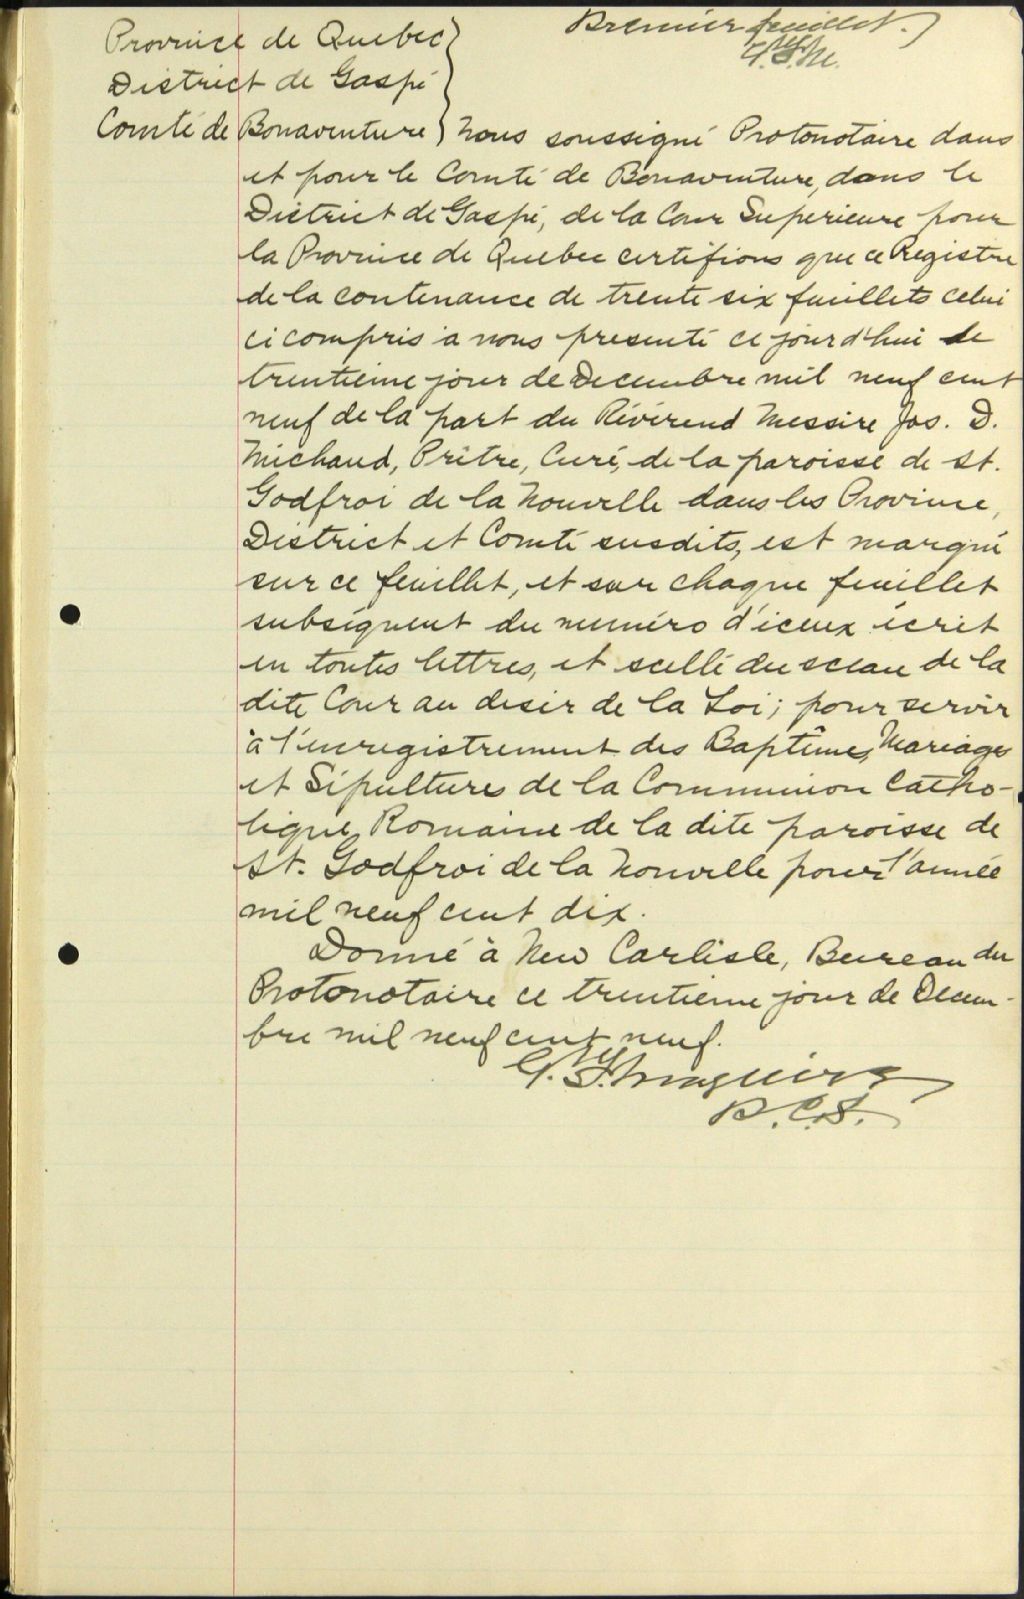 Premier feuillet.
G.S.M.
Province de Quebec
District de Gaspé
Comté de Bonaventure } Nous soussigné Protonotaire dans
et pour le Comté de Bonaventure, dans le
District de Gaspé, de la Cour Superieure pour
la Province de Quebec certifions que ce Registre
de la contenance de trente six feuillets celui
ci compris à nous presenté ce jourd'hui le
trentieme jour de Decembre mil neuf cent
neuf de la part du Révérend Messire Jos. D.
Michaud, Prêtre, Curé, de la paroisse de St.
Godfroi de la Nouvelle dans les Province,
District et Comté susdits, est marqué
sur ce feuillet, et sur chaque feuillet
subséquent du numéro d'iceux écrit
en toutes lettres, et scellé du sceau de la
dite Cour au desir de la Loi; pour servir
à l'enregistrement des Baptêmes, Mariages
et Sépultures de la Communion Catho-
lique Romaine de la dite paroisse de
St. Godfroi de la Nouvelle pour l'année
mil neuf cent dix.
Donné à New Carlisle, Bureau du
Protonotaire ce trentieme jour de Decem-
bre mil neuf cent neuf.
G. S. Maguire
P.C.S.